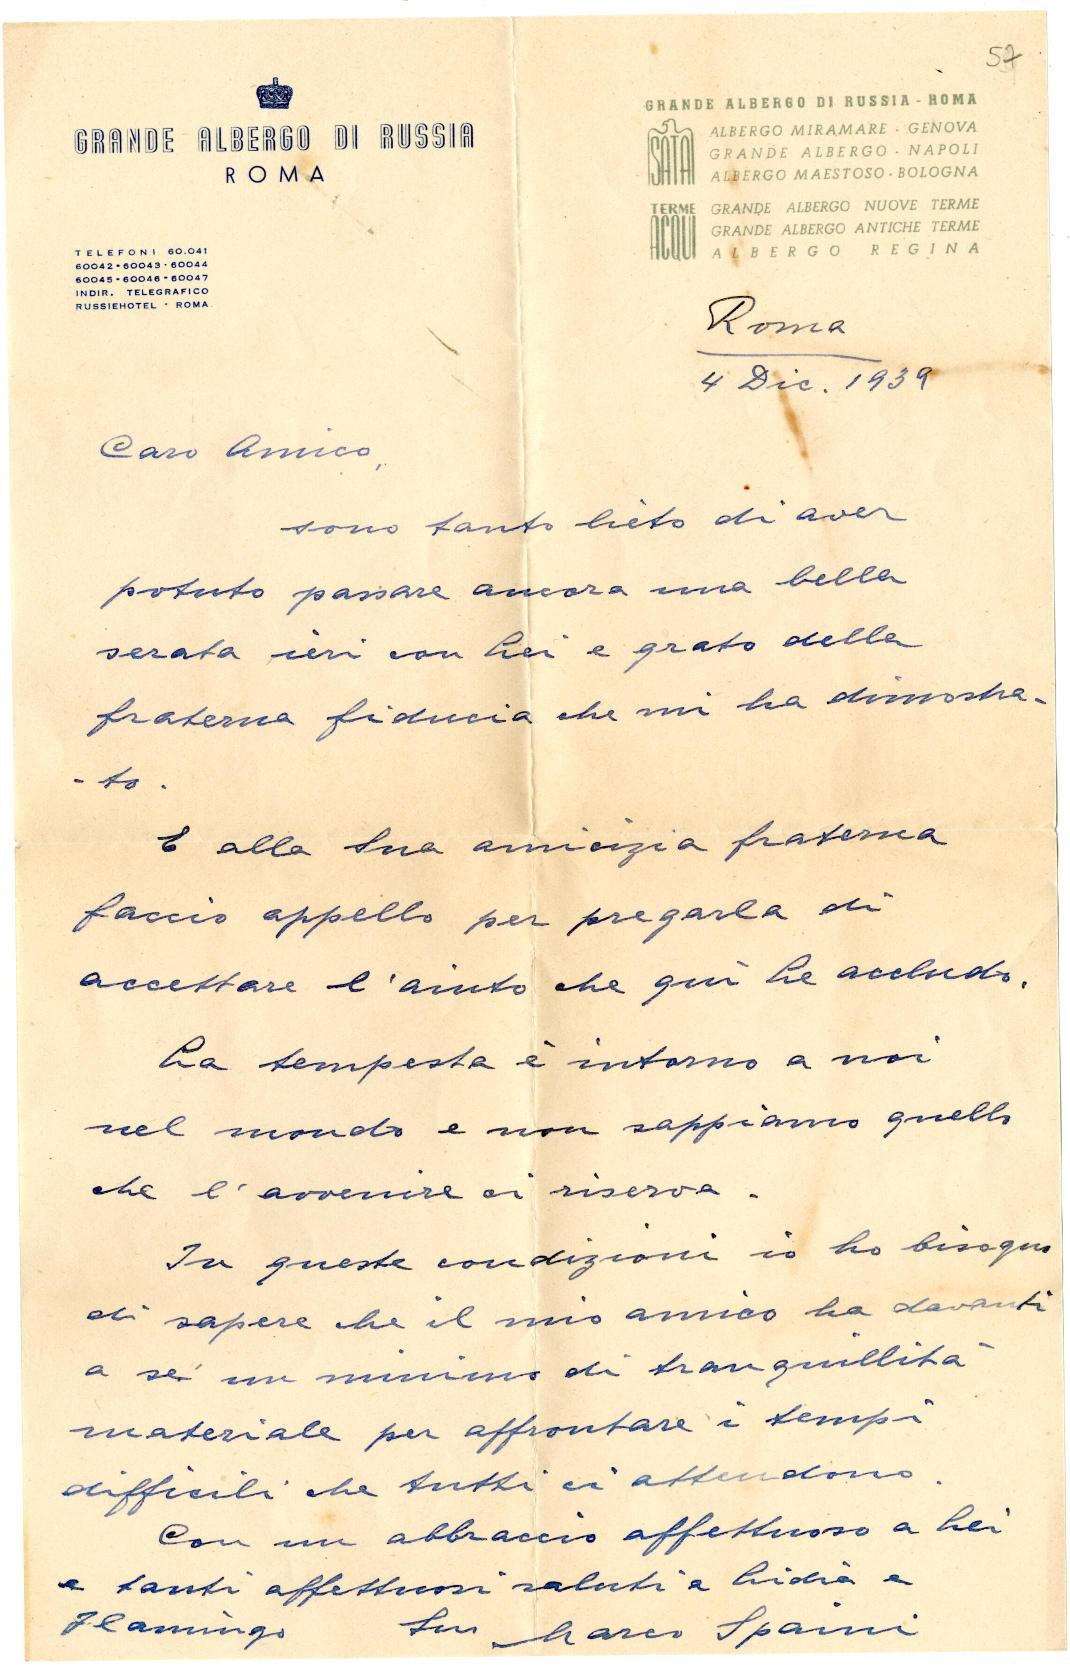 57
GRANDE ALBERGO DI RUSSIA
ROMA
TELEFONI 60.041
60042-60043-60044
60045-60046-60047
INDIR. TELEGRAFICO
RUSSIEHOTEL - ROMA
GRANDE ALBERGO DI RUSSIA - ROMA
SATA
ALBERGO MIRAMARE - GENOVA
GRANDE ALBERGO - NAPOLI
ALBERGO MAESTOSO - BOLOGNA
TERME
ACQUI
GRANDE ALBERGO NUOVE TERME
GRANDE ALBERGO ANTICHE TERME
ALBERGO REGINA
Roma
4 Dic. 1939
Caro Amico,
sono tanto lieto di aver
potuto passare ancora una bella
serata ieri con Lei e grato della
fraterna fiducia che mi ha dimostra-
-to.
E alla Sua amicizia fraterna
faccio appello per pregarLa di
accettare l'aiuto che qui Le accludo.
La tempesta è intorno a noi
nel mondo e non sappiamo quello
che l'avvenire ci riserva.
In queste condizioni io ho bisogno
di sapere che il mio amico ha davanti
a sé un minimo di tranquillità
materiale per affrontare i tempi
difficili che tutti ci attendono.
Con un abbraccio affettuoso a Lei
e tanti affettuosi saluti a Lidia e
Flamingo Suo Marco Spaini